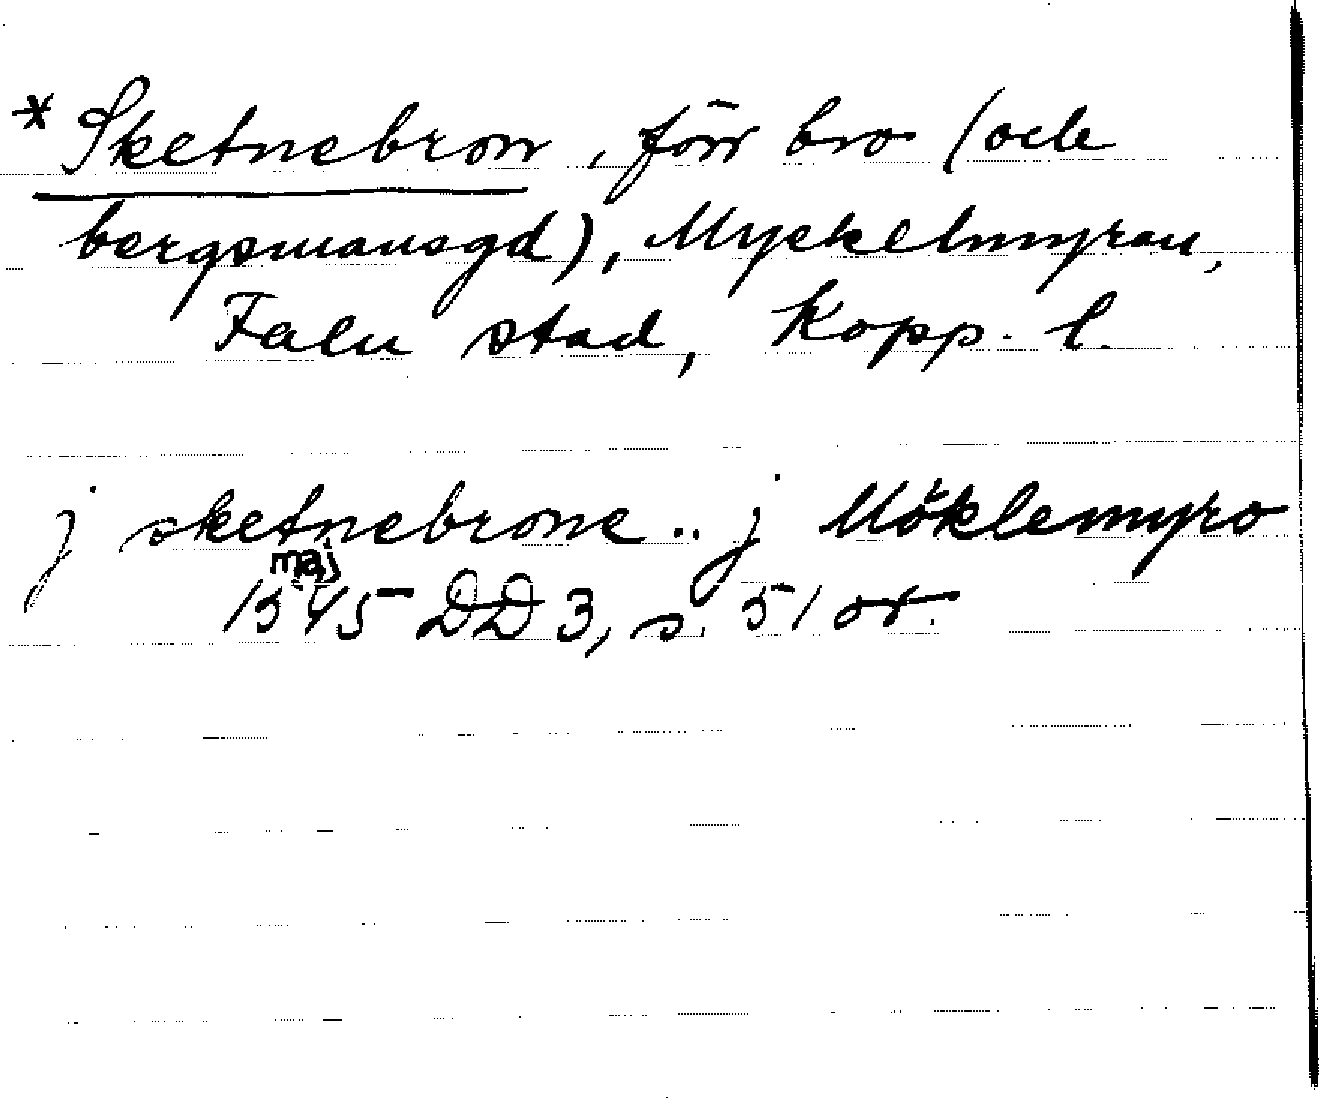 * Sketnebron, förr bro (och
bergsmansgd), Myckelmyran,
Falu stad, Kopp. l.
j sketnebrone .. j Möklemyro
maj
1545 DD 3, s. 51 or.